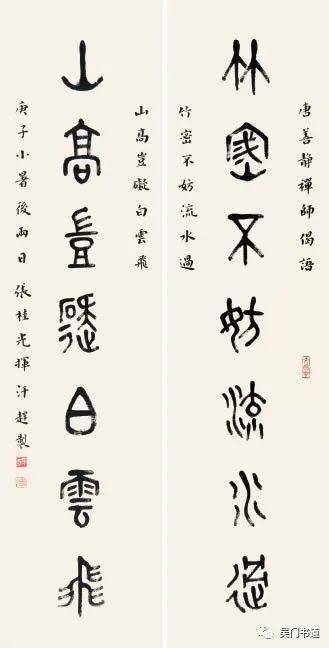 唐善靜禪師偈語
竹密不妨流水過
竹密不妨流水過
山高豈礙白雲飛
山高豈礙白雲飛
庚子小暑後兩日 張桂光揮汗趕製
吴门书道